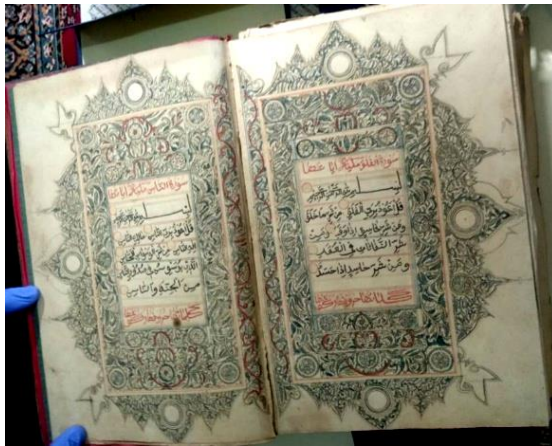 سورة الفلق
بسم الله الرحمن الرحيم
قل اعوذ برب الفلق من شر ما خلق
ومن شر غاسق اذا وقب ومن
شر النفاثات في العقد
ومن شر حاسد اذا حسد
سورة الناس
بسم الله الرحمن الرحيم
قل اعوذ برب الناس ملك الناس
اله الناس من شر الوسواس الخناس
الذي يوسوس في صدور الناس
من الجنة والناس